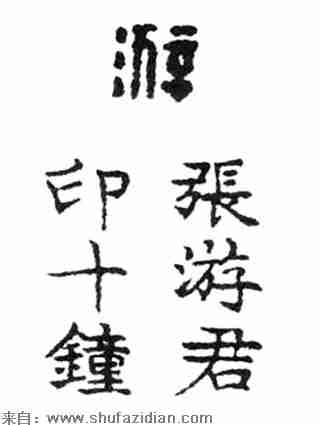 游
張游君
印十鐘
来自：www.shufazidian.com